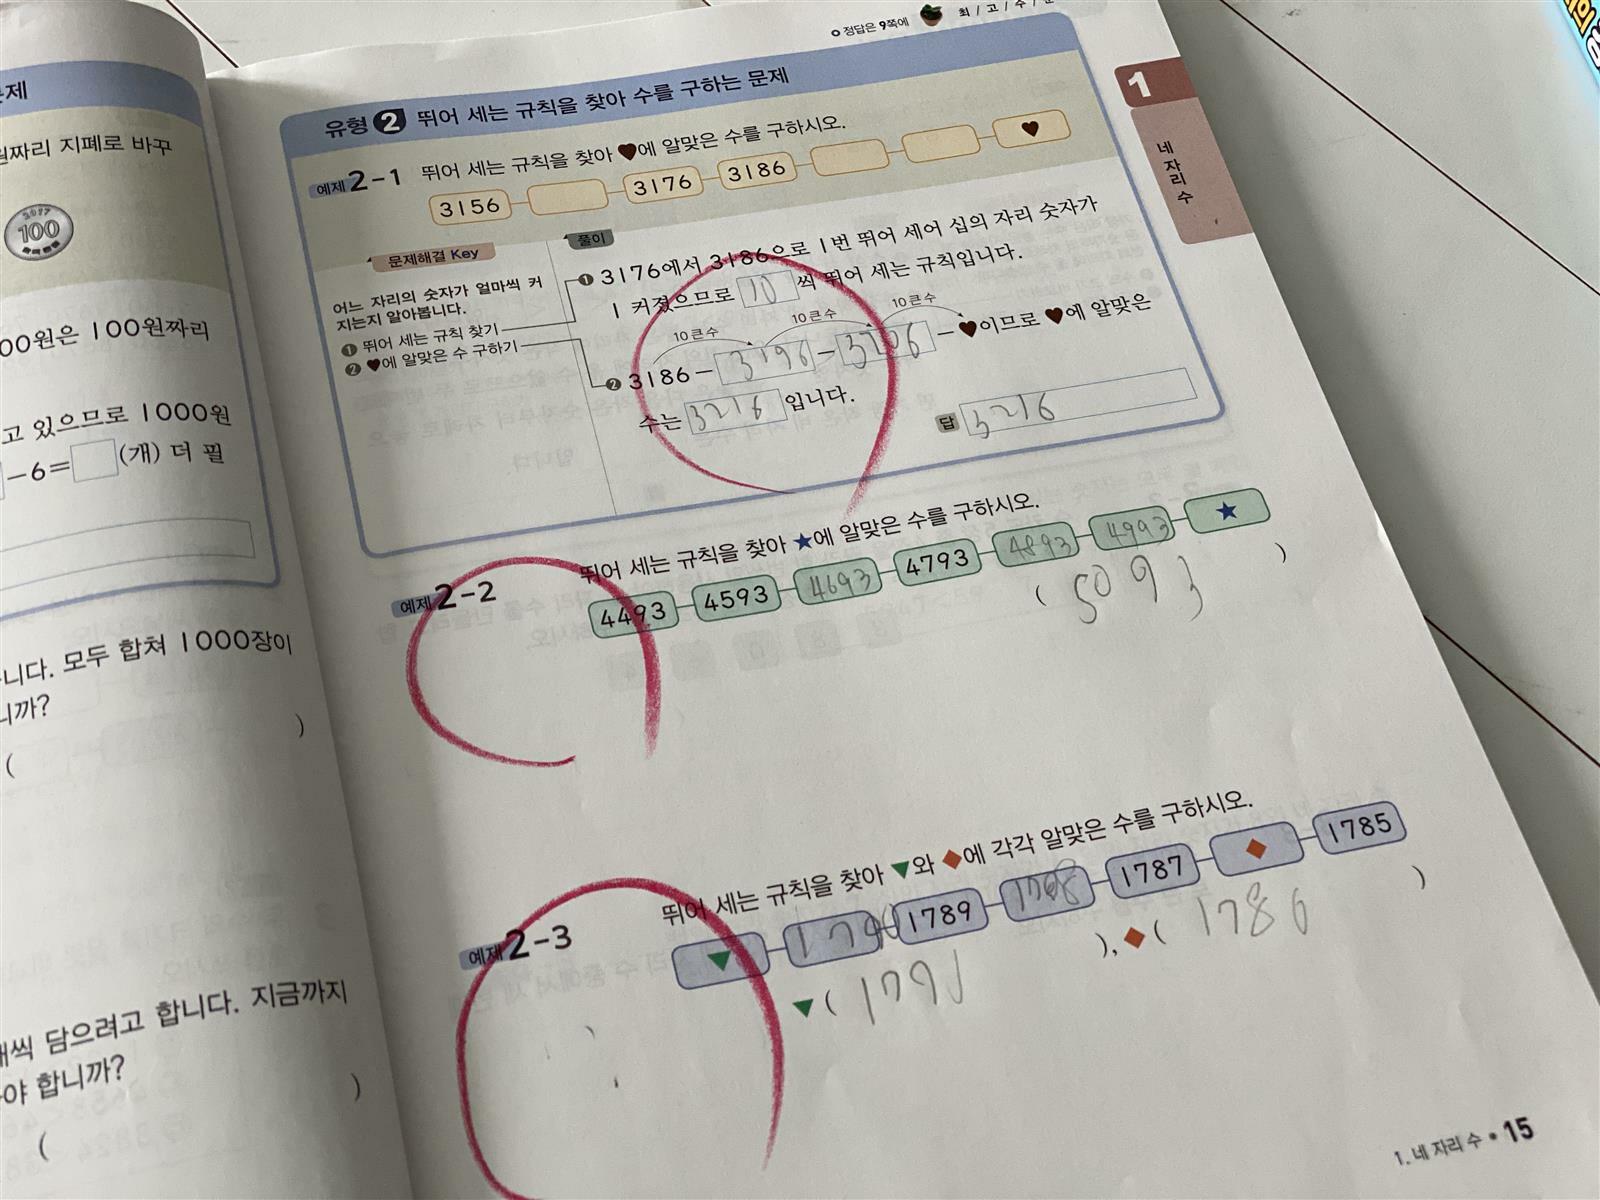 정답은 9쪽에
최/고/수/준
문제
유형 2 뛰어 세는 규칙을 찾아 수를 구하는 문제
예제 2-1 뛰어 세는 규칙을 찾아 ♥에 알맞은 수를 구하시오.
3156 3176 3186 ♥
문제해결 Key
어느 자리의 숫자가 얼마씩 커
지는지 알아봅니다.
❶ 뛰어 세는 규칙 찾기
❷ ♥에 알맞은 수 구하기
풀이
❶ 3176에서 3186으로 1번 뛰어 세어 십의 자리 숫자가
1 커졌으므로 10 씩 뛰어 세는 규칙입니다.
10 큰 수 10 큰 수 10 큰 수
❷ 3186 - 3196 - 3206 - ♥이므로 ♥에 알맞은
수는 3216 입니다.
답 3216
예제 2-2 뛰어 세는 규칙을 찾아 ★에 알맞은 수를 구하시오.
4493 4593 4693 4793 4893 4993 ★
( 5093 )
예제 2-3 뛰어 세는 규칙을 찾아 ▼와 ◆에 각각 알맞은 수를 구하시오.
▼ 1790 1789 1787 ◆ 1785
▼( 1791 ), ◆( 1786 )
1. 네 자리 수 • 15
1
네 자리 수
원짜리 지폐로 바꾸
2017
100
00원은 100원짜리
고 있으므로 1000원
-6= (개) 더 필
니다. 모두 합쳐 1000장이
니까?
( )
개씩 담으려고 합니다. 지금까지
야 합니까?
( )